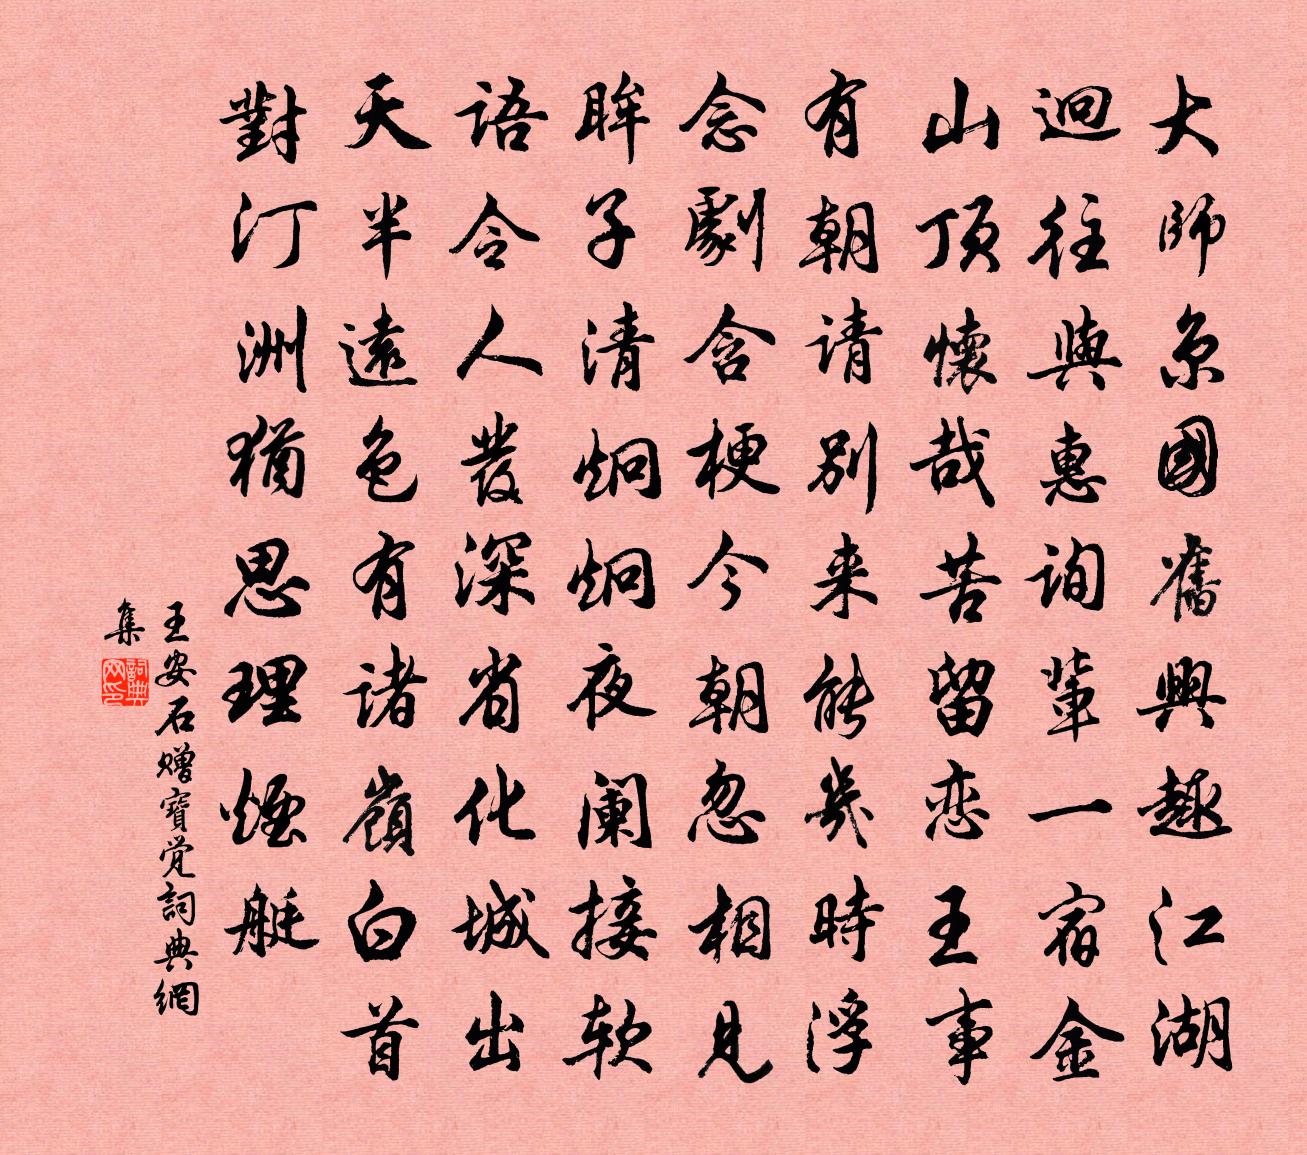 大師京國舊興趣江湖
迥往與惠詢輩一宿金
山頂懷哉苦留恋王事
有朝请别来能幾時浮
念劇含梗今朝忽相見
眸子清炯炯夜阑接软
语令人發深省化城出
天半遠色有诸嶺白首
對汀洲猶思理煙艇
王安石赠寶觉詞典網
集
詞典网印